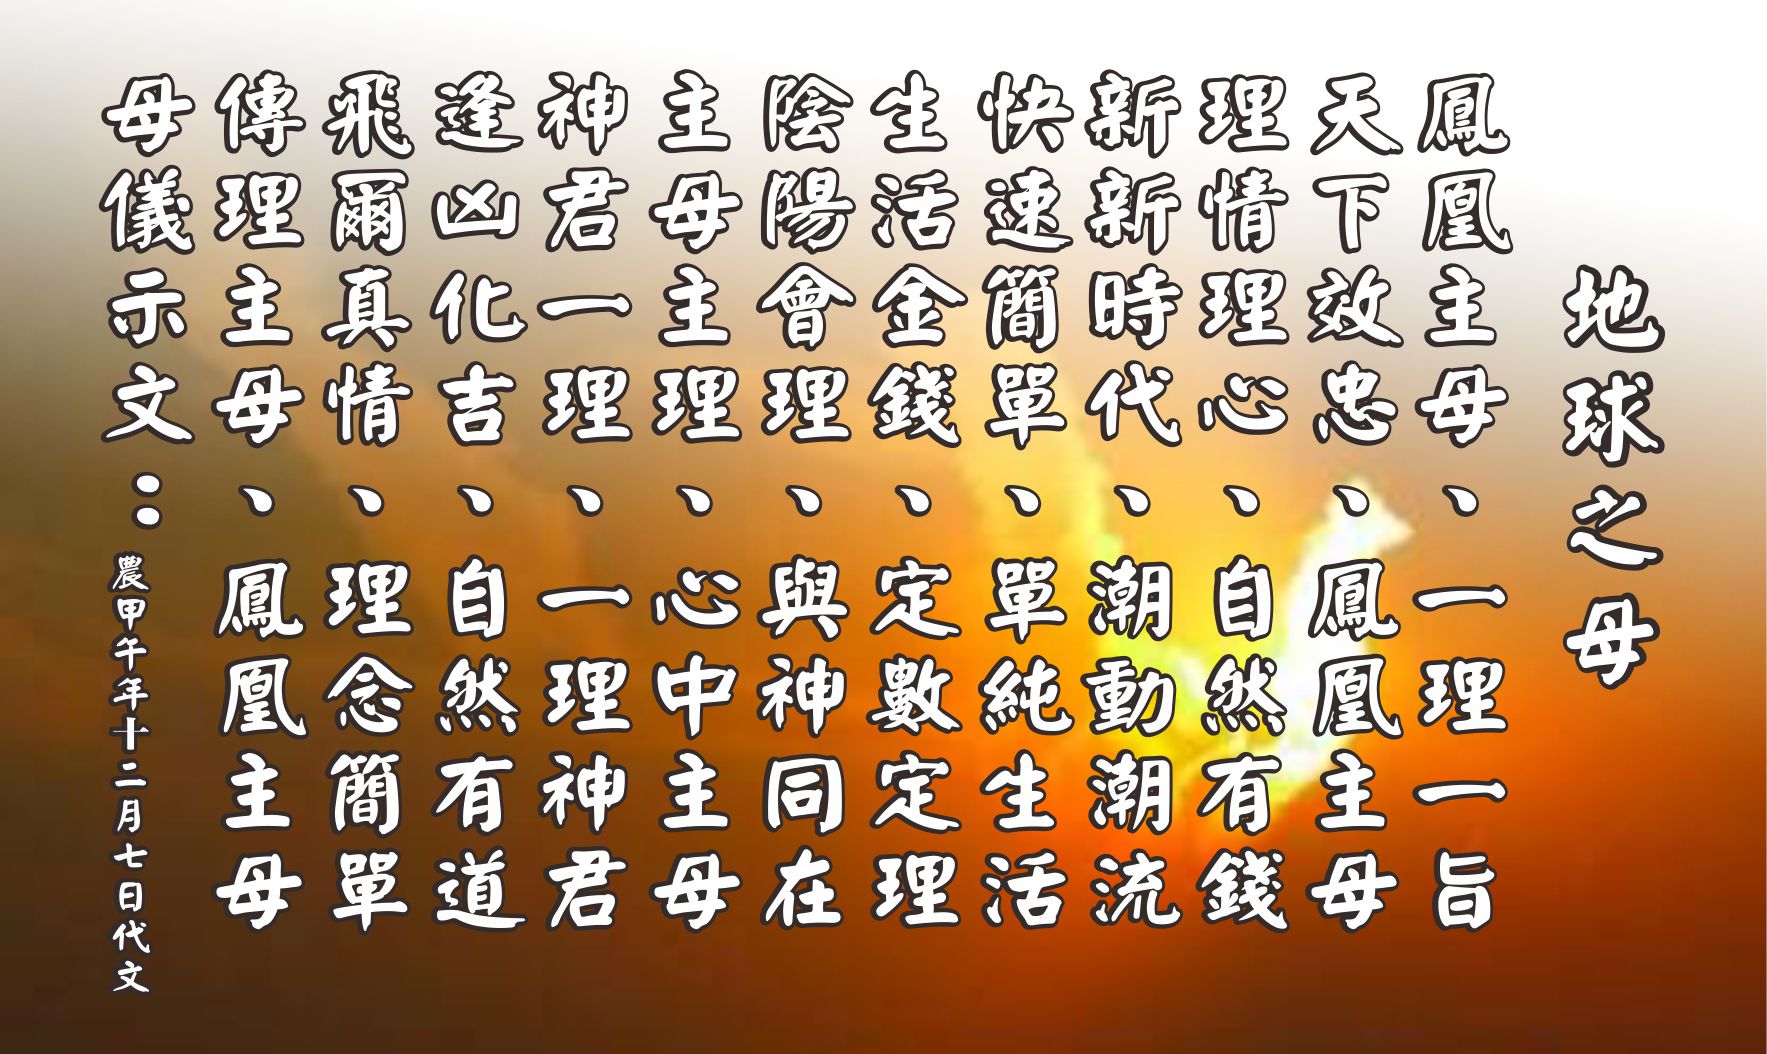 地球之母
鳳凰主母、一理一旨
天下效忠、鳳凰主母
理情理心、自然有錢
新新時代、潮動潮流
快速簡單、單純生活
生活金錢、定數定理
陰陽會理、與神同在
主母主理、心中主母
神君一理、一理神君
逢凶化吉、自然有道
飛爾真情、理念簡單
傳理主母、鳳凰主母
母儀示文：農甲午年十二月七日代文